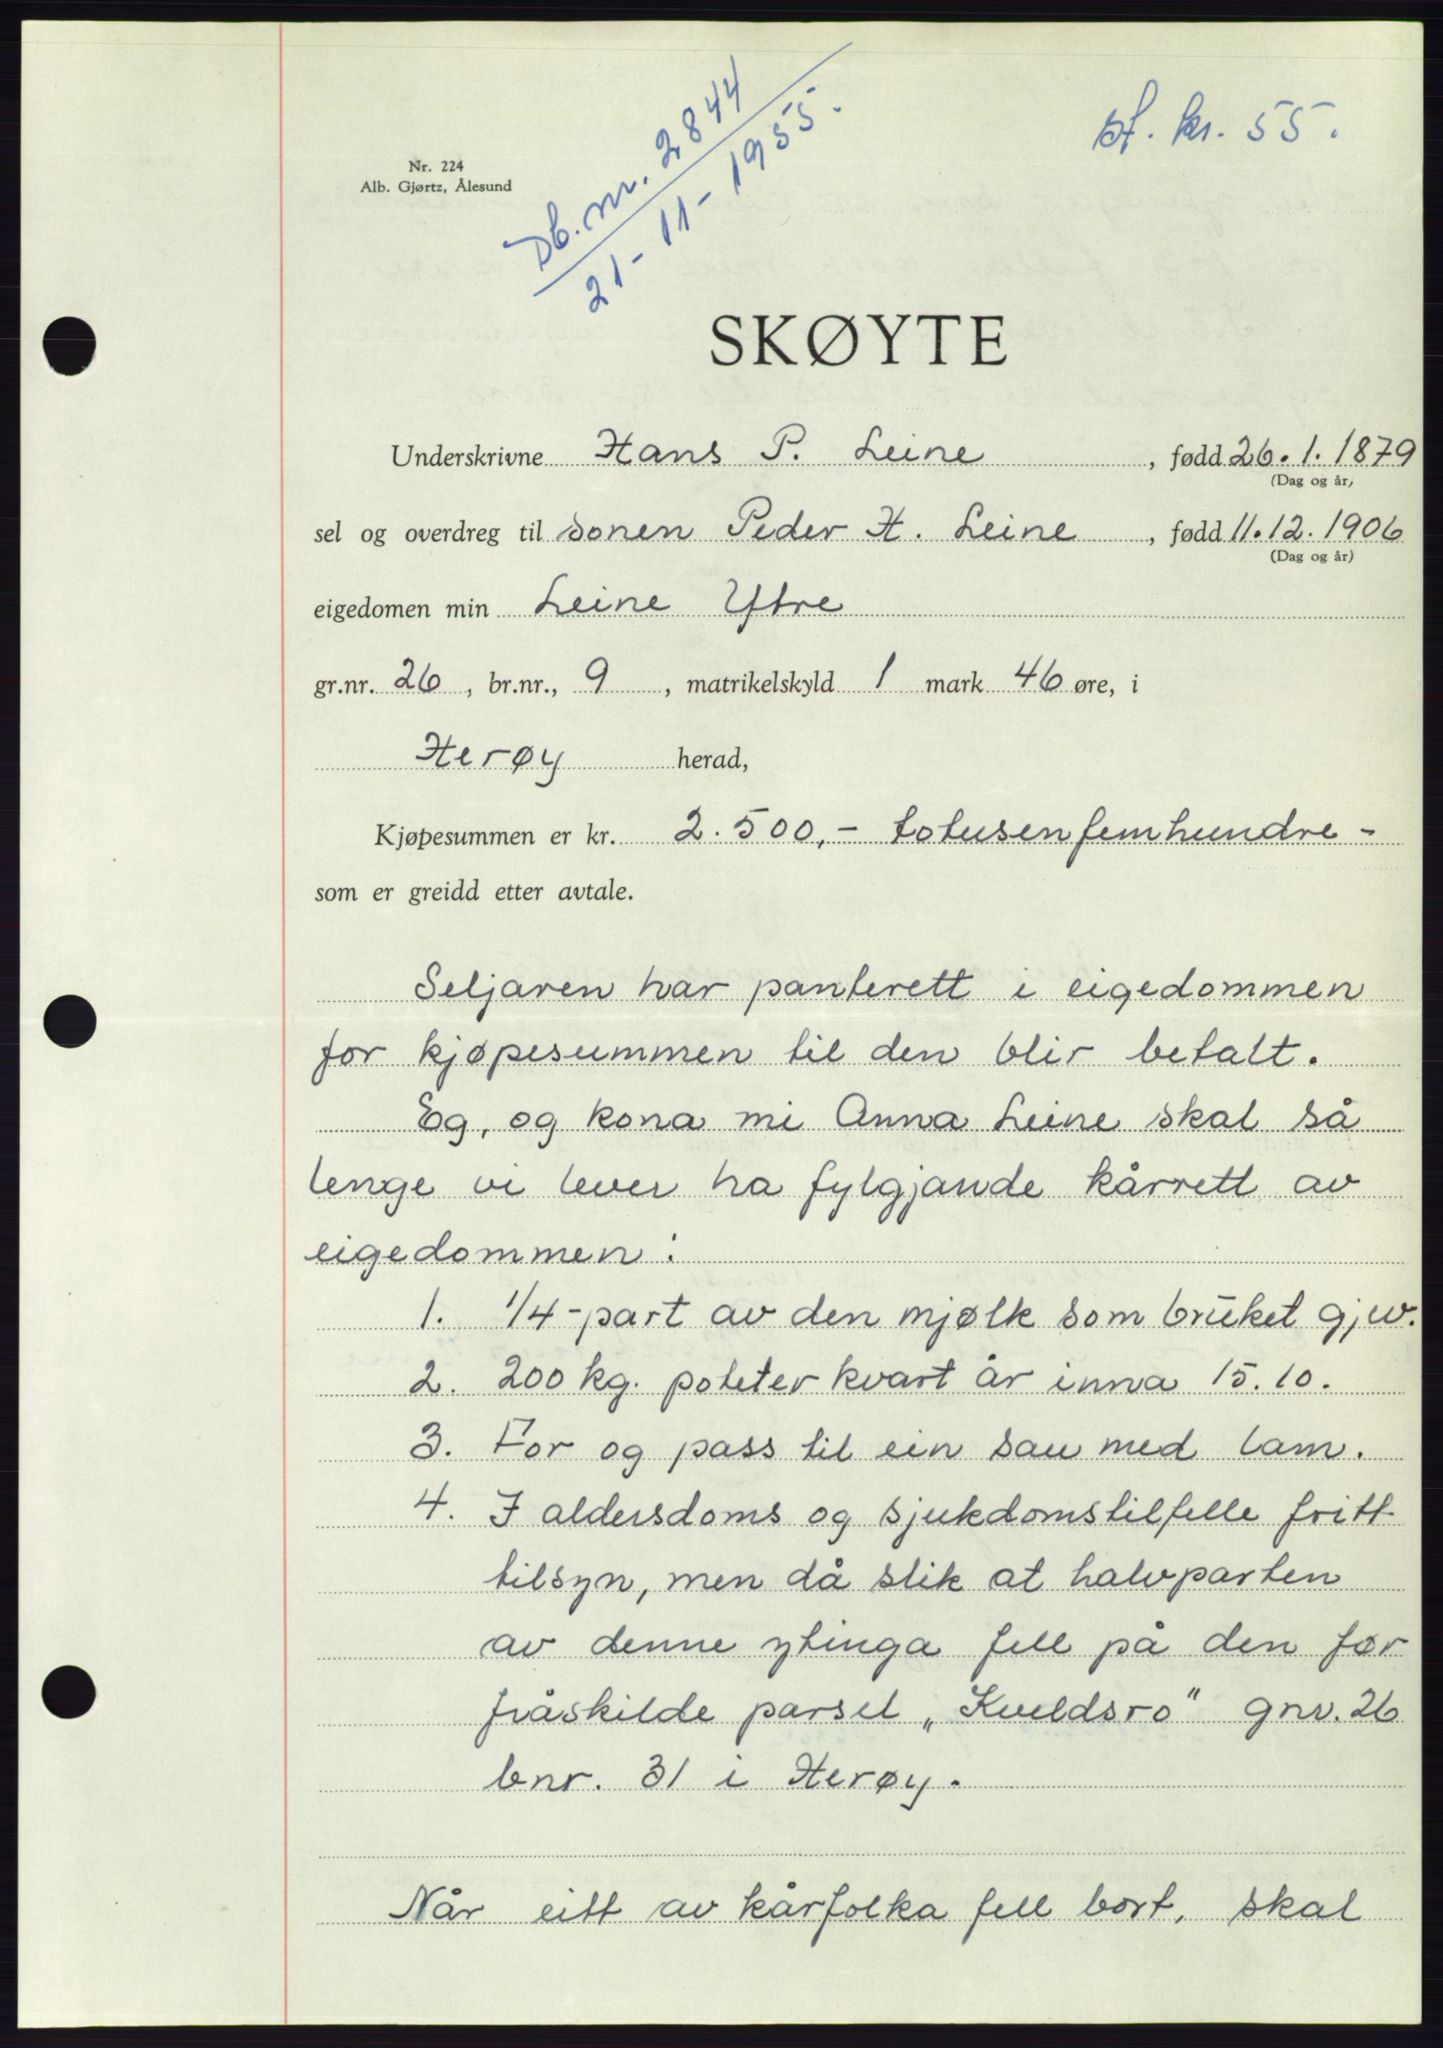 Db. nr. 2844
21-11-1955.
st. kr. 55.
Nr. 224
Alb. Gjørtz, Ålesund
SKØYTE
Underskrivne Hans P. Leine, fødd 26.1.1879
(Dag og år)
sel og overdreg til sonen Peder H. Leine, fødd 11.12.1906
(Dag og år)
eigedomen min Leine Ytre
gr.nr. 26, br.nr., 9, matrikelskyld 1 mark 46 øre, i
Herøy herad,
Kjøpesummen er kr. 2.500,- totusenfemhundre -
som er greidd etter avtale.
Seljaren har panterett i eigedommen
for kjøpesummen til den blir betalt.
Eg, og kona mi Anna Leine skal så
lenge vi lever ha fylgjande kårrett av
eigedommen:
1. 1/4-part av den mjølk som bruket gjev.
2. 200 kg. poteter kvart år inna 15.10.
3. For og pass til ein sau med lam.
4. I aldersdoms og sjukdomstilfelle fritt
tilsyn, men då slik at halvparten
av denne ytinga fell på den før
fråskilde parsel „Kveldsro" gnr. 26
bnr. 31 i Herøy.
Når eitt av kårfolka fell bort, skal